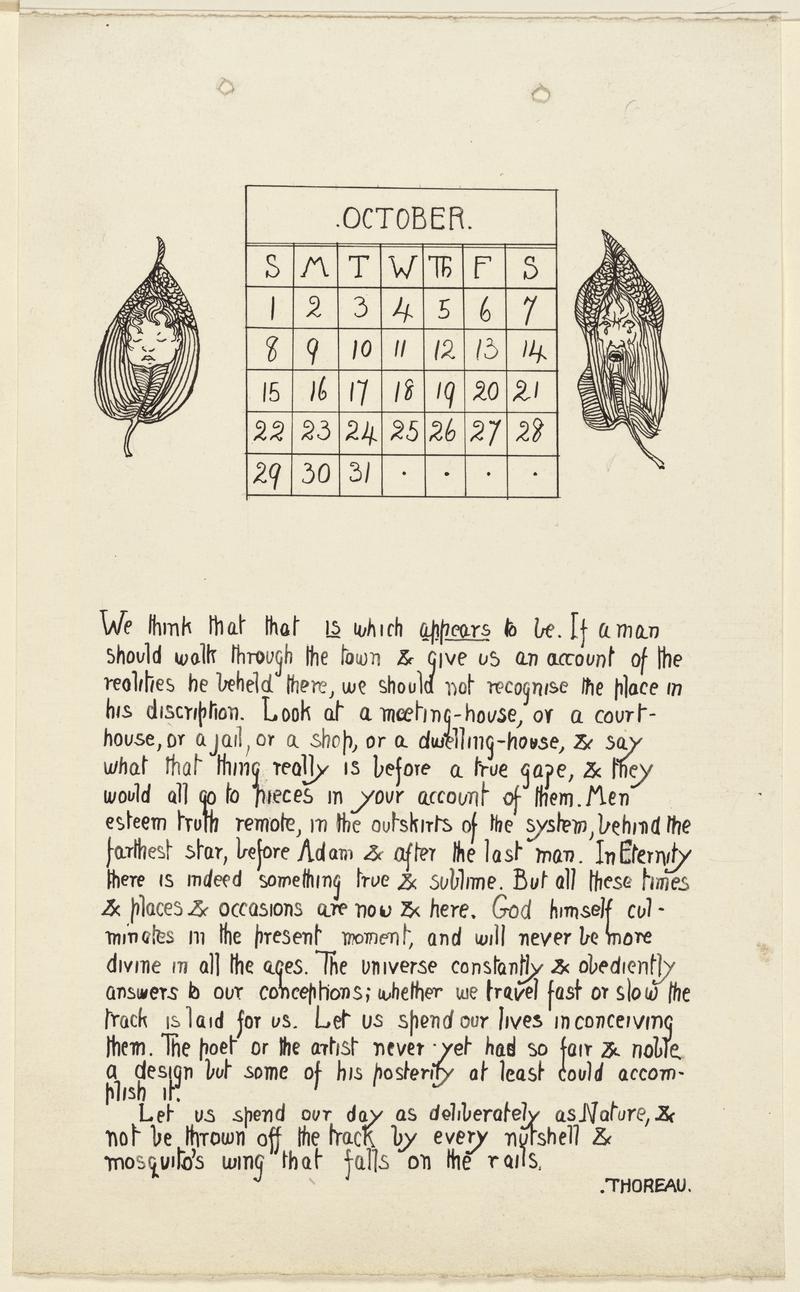 .OCTOBER.
S M T W TH F S
1 2 3 4 5 6 7
8 9 10 11 12 13 14
15 16 17 18 19 20 21
22 23 24 25 26 27 28
29 30 31 · · · ·
We think that that is which appears to be. If a man
should walk through the town & give us an account of the
realities he beheld there, we should not recognise the place in
his discription. Look at a meeting-house, or a court-
house, or a jail, or a shop, or a dwelling-house, & say
what that thing really is before a true gaze, & they
would all go to pieces in your account of them. Men
esteem truth remote, in the outskirts of the system, behind the
farthest star, before Adam & after the last man. In Eternity
there is indeed something true & sublime. But all these times
& places & occasions are now & here. God himself cul-
minates in the present moment, and will never be more
divine in all the ages. The universe constantly & obediently
answers to our conceptions; whether we travel fast or slow the
track is laid for us. Let us spend our lives in conceiving
them. The poet or the artist never yet had so fair & noble
a design but some of his posterity at least could accom-
plish it.
Let us spend our day as deliberately as Nature, &
not be thrown off the track by every nutshell &
mosquito's wing that falls on the rails.
.THOREAU.